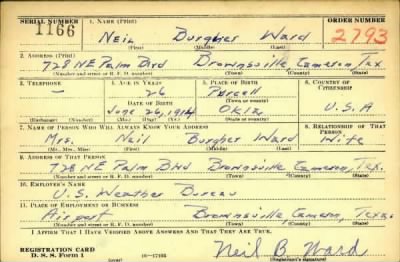 SERIAL NUMBER 1. NAME (Print) ORDER NUMBER
1166 Neil Burgher Ward 2793
(First) (Middle) (Last)
2. ADDRESS (Print)
728 NE Palm Blvd Brownsville, Cameron Tex
(Number and street or R. F. D. number) (Town) (County) (State)
3. TELEPHONE 4. AGE IN YEARS 5. PLACE OF BIRTH 6. COUNTRY OF CITIZENSHIP
— 26 Purcell
DATE OF BIRTH (Town or county)
June 26, 1914 Okla U.S.A
(Exchange) (Number) (Mo.) (Day) (Yr.) (State or country)
7. NAME OF PERSON WHO WILL ALWAYS KNOW YOUR ADDRESS 8. RELATIONSHIP OF THAT PERSON
Mrs, Neil Burgher Ward Wife
(Mr., Mrs., Miss) (First) (Middle) (Last)
9. ADDRESS OF THAT PERSON
728 NE Palm Blvd Brownsville, Cameron, Tex.
(Number and street or R. F. D. number) (Town) (County) (State)
10. EMPLOYER'S NAME
U.S. Weather Bureau
11. PLACE OF EMPLOYMENT OR BUSINESS
Airport Brownsville, Cameron, Texas
(Number and street or R. F. D. number) (Town) (County) (State)
I AFFIRM THAT I HAVE VERIFIED ABOVE ANSWERS AND THAT THEY ARE TRUE.
REGISTRATION CARD
D. S. S. Form 1 16—17105 Neil B Ward
(Registrant's signature)